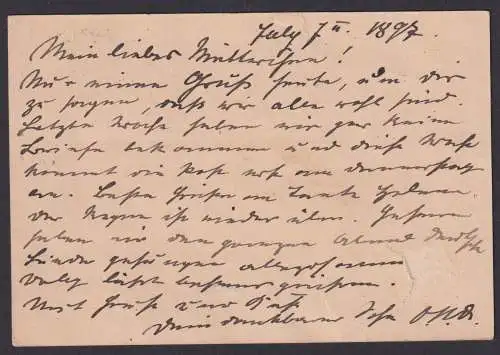 July 7. II. 1897.
Mein liebes Mütterchen!
Nur einen Gruß heute, um dir
zu sagen, daß wir alle wohl sind.
Letzte Woche haben wir gar keine
Briefe bekommen und diese Woche
kommt die Post erst am Donnerstag
an. Beste Grüße an Tante Helene.
Der Regen ist wieder über. Gestern
haben wir den ganzen Abend deutsche
Lieder gesungen
läßt bestens grüßen.
Mit Gruß und Kuß
Dein dankbarer Sohn Otto.